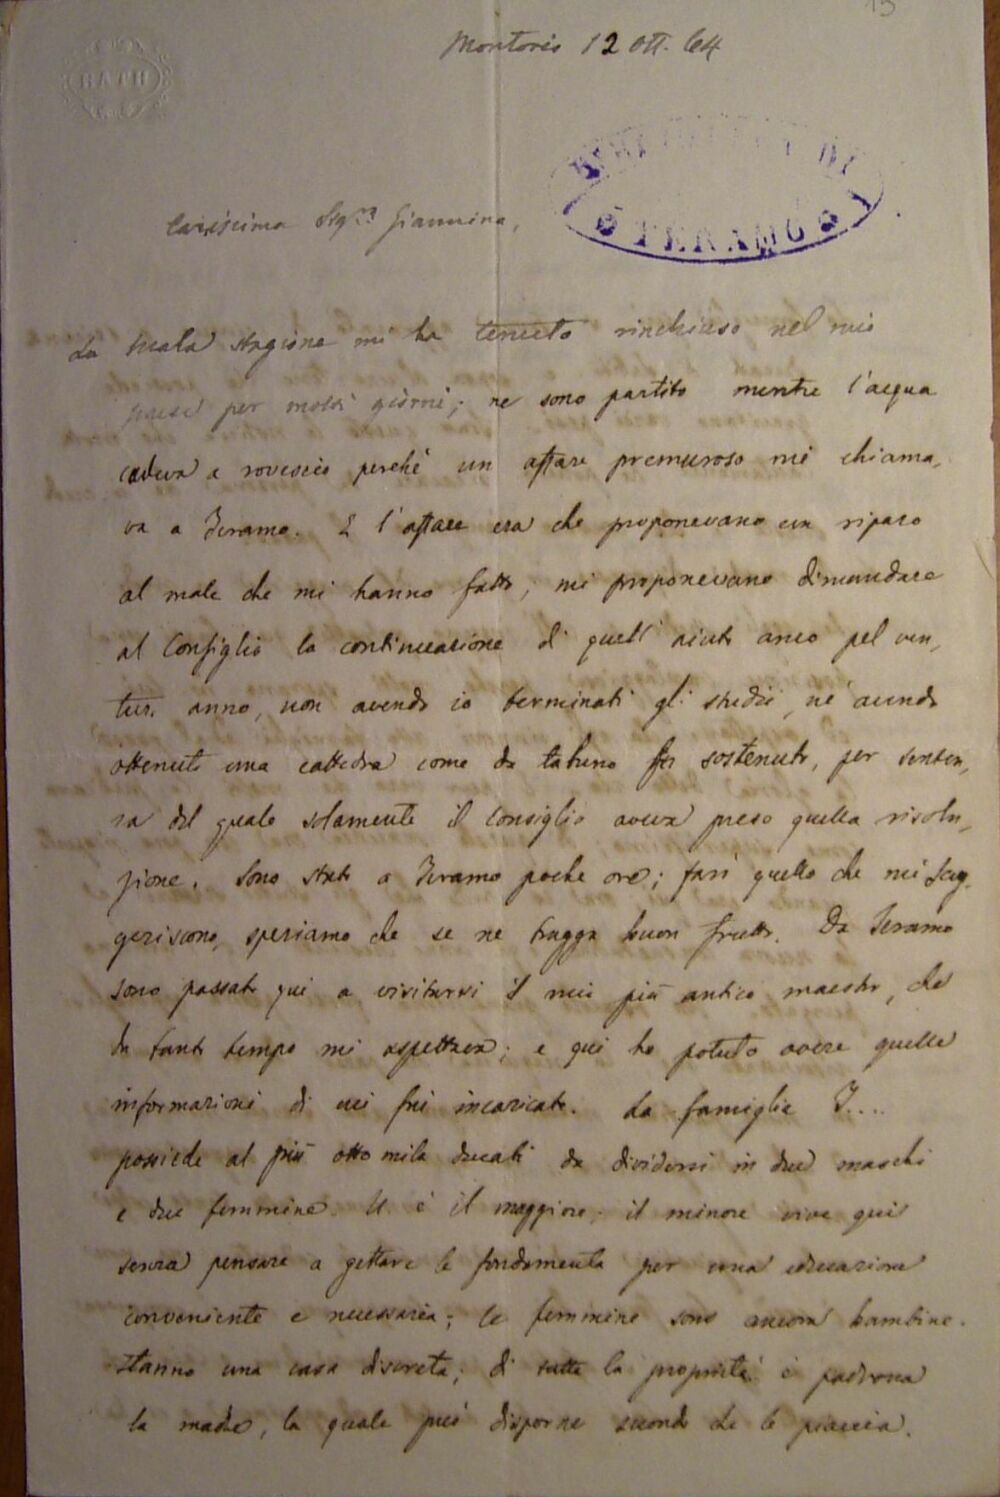 15
BATH
Montorio 12 Ott. 64
TERAMO
Carissima Sig.ra Giannina,
La mala stagione mi ha tenuto rinchiuso nel mio
paese per molti giorni; ne sono partito mentre l'acqua
cadeva a rovescio perchè un affare premuroso mi chiama,
va a Teramo. E l'affare era che proponevano un riparo
al male che mi hanno fatto, mi proponevano dimandare
al Consiglio la continuazione di quell'aiuto anco pel ven,
turo anno, non avendo io terminati gli studii, nè avendo
ottenuto una cattedra come da taluno fu sostenuto, per senten,
za del quale solamente il Consiglio aveva preso quella risolu,
zione. Sono stato a Teramo poche ore; farò quello che mi sug,
geriscono, speriamo che se ne tragga buon frutto. Da Teramo
sono passato qui a visitarvi il mio più antico maestro, che
da tanto tempo mi aspettava; e qui ho potuto avere quelle
informazioni di cui fui incaricato. La famiglia T....
possiede al più otto mila ducati da dividersi in due maschi
e due femmine. U. è il maggiore; il minore vive qui
senza pensare a gettare le fondamenta per una educazione
conveniente e necessaria; le femmine sono ancora bambine.
Hanno una casa discreta; di tutta la proprietà è padrona
la madre, la quale può disporne secondo che le piaccia.